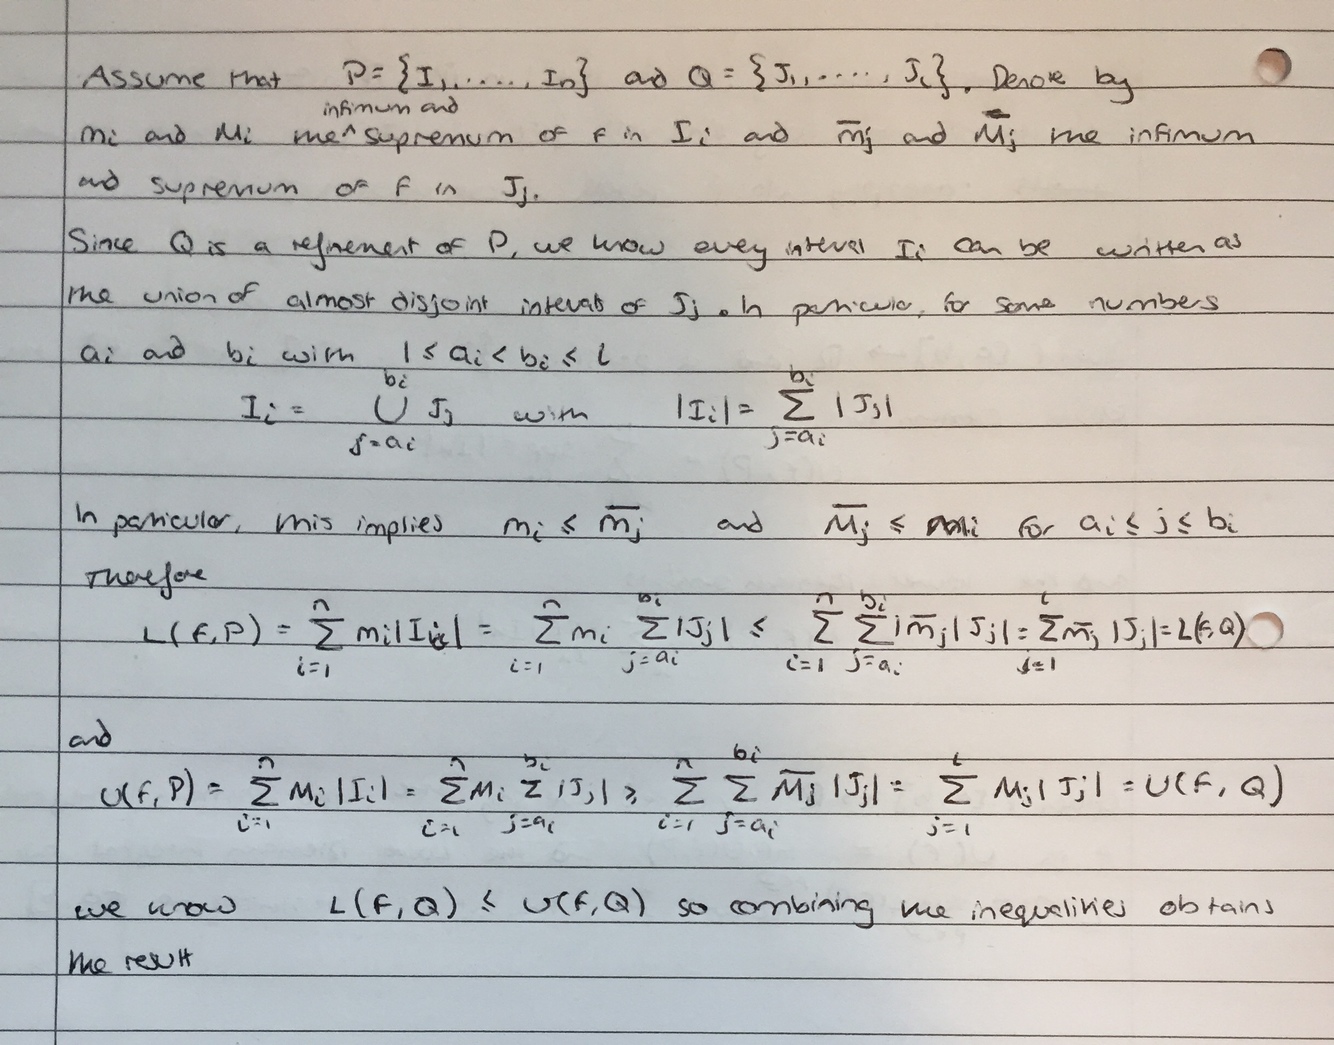 Assume that P = {I₁, ....., Iₙ} and Q = {J₁, ....., Jₗ}. Denote by
infimum and
mᵢ and Mᵢ the ^ supremum of f in Iᵢ and m̄ⱼ and M̄ⱼ the infimum
and supremum of f in Jⱼ.
Since Q is a refinement of P, we know every interval Iᵢ can be written as
the union of almost disjoint intervals of Jⱼ. In particular, for some numbers
aᵢ and bᵢ with 1 ≤ aᵢ < bᵢ ≤ l
Iᵢ = ⋃_{j=aᵢ}^{bᵢ} Jⱼ with |Iᵢ| = Σ_{j=aᵢ}^{bᵢ} |Jⱼ|
In particular, this implies mᵢ ≤ m̄ⱼ and M̄ⱼ ≤ Mᵢ for aᵢ ≤ j ≤ bᵢ
Therefore
L(f,P) = Σ_{i=1}^{n} mᵢ|Iᵢ| = Σ_{i=1}^{n} mᵢ Σ_{j=aᵢ}^{bᵢ} |Jⱼ| ≤ Σ_{i=1}^{n} Σ_{j=aᵢ}^{bᵢ} m̄ⱼ|Jⱼ| = Σ_{j=1}^{l} m̄ⱼ |Jⱼ| = L(f,Q)
and
U(f,P) = Σ_{i=1}^{n} Mᵢ |Iᵢ| = Σ_{i=1}^{n} Mᵢ Σ_{j=aᵢ}^{bᵢ} |Jⱼ| ≥ Σ_{i=1}^{n} Σ_{j=aᵢ}^{bᵢ} M̄ⱼ |Jⱼ| = Σ_{j=1}^{l} Mⱼ|Jⱼ| = U(f,Q)
we know L(f,Q) ≤ U(f,Q) so combining the inequalities obtains
the result